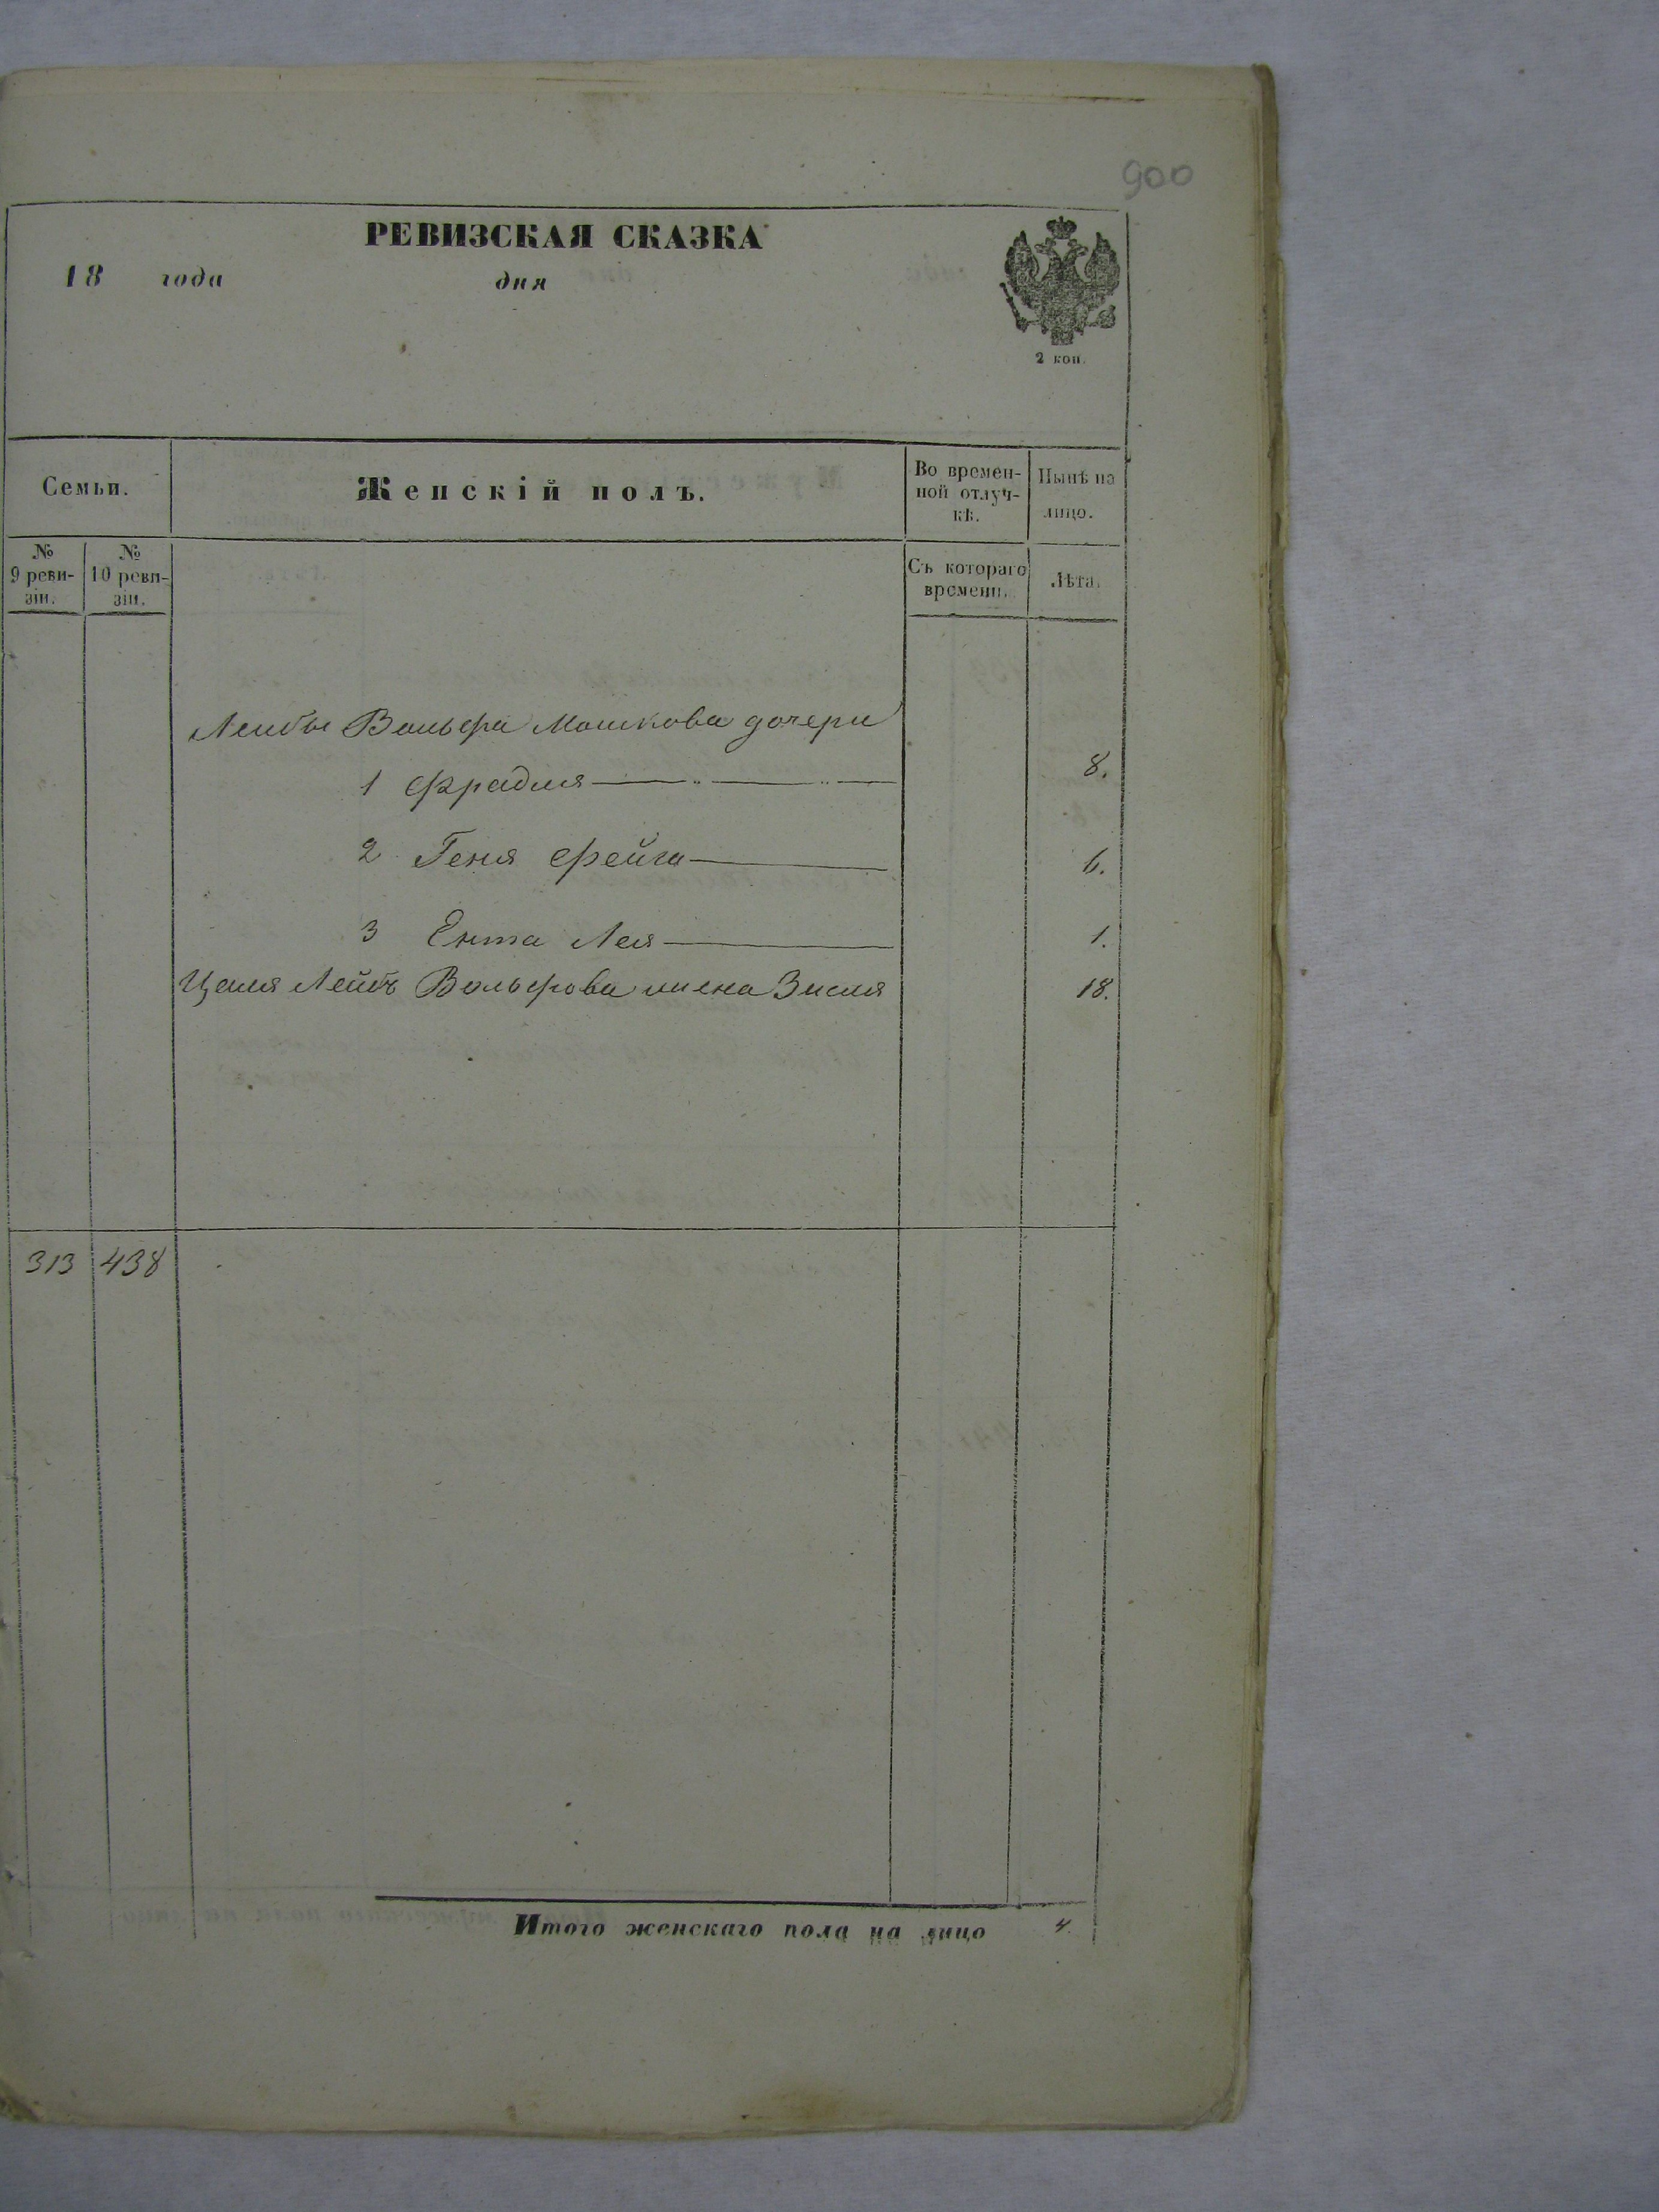 900
РЕВИЗСКАЯ СКАЗКА
18 года дня
2 коп.
Семьи.
Женскій полъ.
Во времен-
ной отлуч-
кѣ.
Нынѣ на
лицо.
№
9 реви-
зіи.
№
10 реви-
зіи.
Съ котораго
времени.
Лѣта.
Лейбы Вольфа Мошкова дочери
1 Фрадля 8.
2 Геня Фейга 6.
3 Ента Лея 1.
Цаля Лейбъ Вольфова жена Зисля 18.
313 438
Итого женскаго пола на лицо 4.